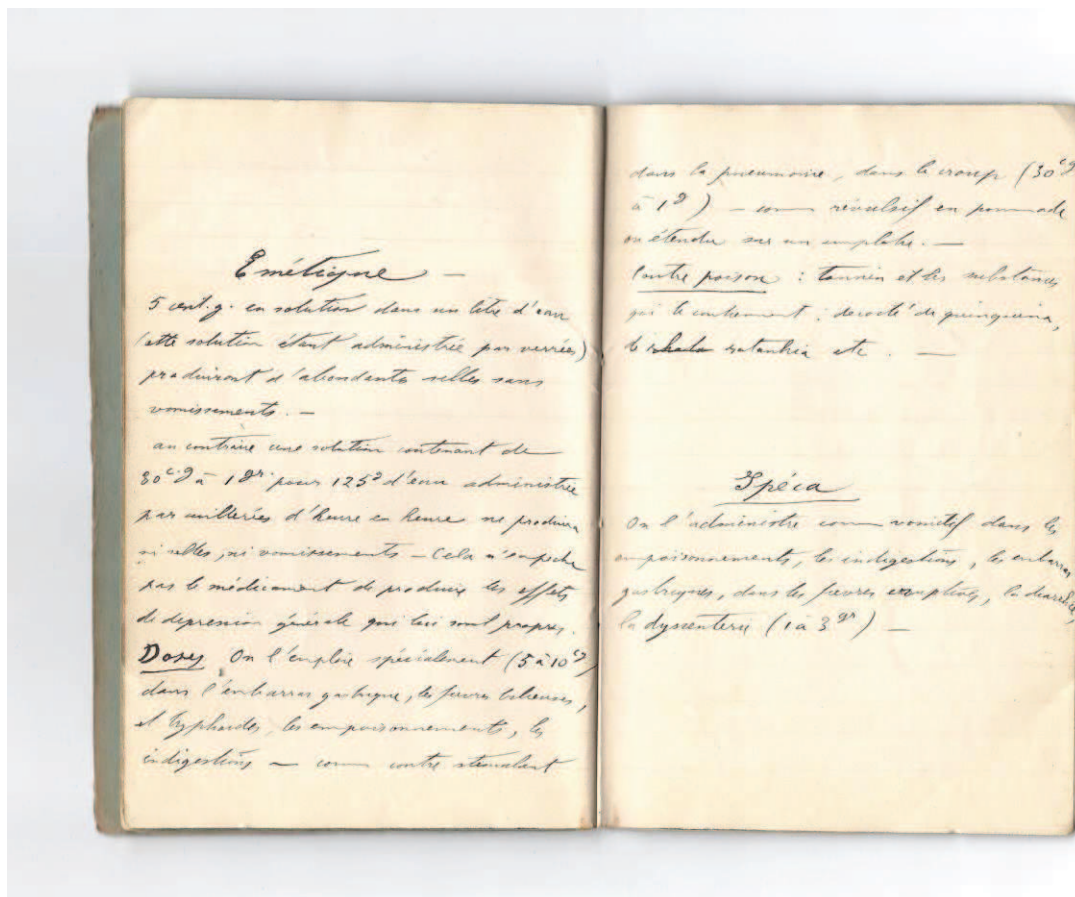 Emétique —
5 cent. g. en solution dans un litre d'eau
(cette solution étant administrée par verrées)
produiront d'abondantes selles sans
vomissements. —
au contraire une solution contenant de
30 c.g à 1 gr. pour 125 g d'eau administrée
par cuillerées d'heure en heure ne produira
ni selles, ni vomissements — Cela n'empêche
pas le médicament de produire les effets
de dépression générale qui lui sont propres.
Doses On l'emploie spécialement (5 à 10 cg)
dans l'embarras gastrique, les fièvres bilieuses,
et typhoïdes, les empoisonnements, les
indigestions — comm contre stimulant
dans la pneumonie, dans le croup (30 c.g
à 1 g) — comm révulsif en pommade
ou étendu sur un emplâtre. —
Contre poison : tannin et les substances
qui le contiennent ; décocté de quinquina,
de ratanhia etc. —
Ipéca
On l'administre comm vomitif dans les
empoisonnements, les indigestions, les embarras
gastriques, dans les fièvres éruptives, la diarrhée,
la dyssenterie (1 à 3 gr) —